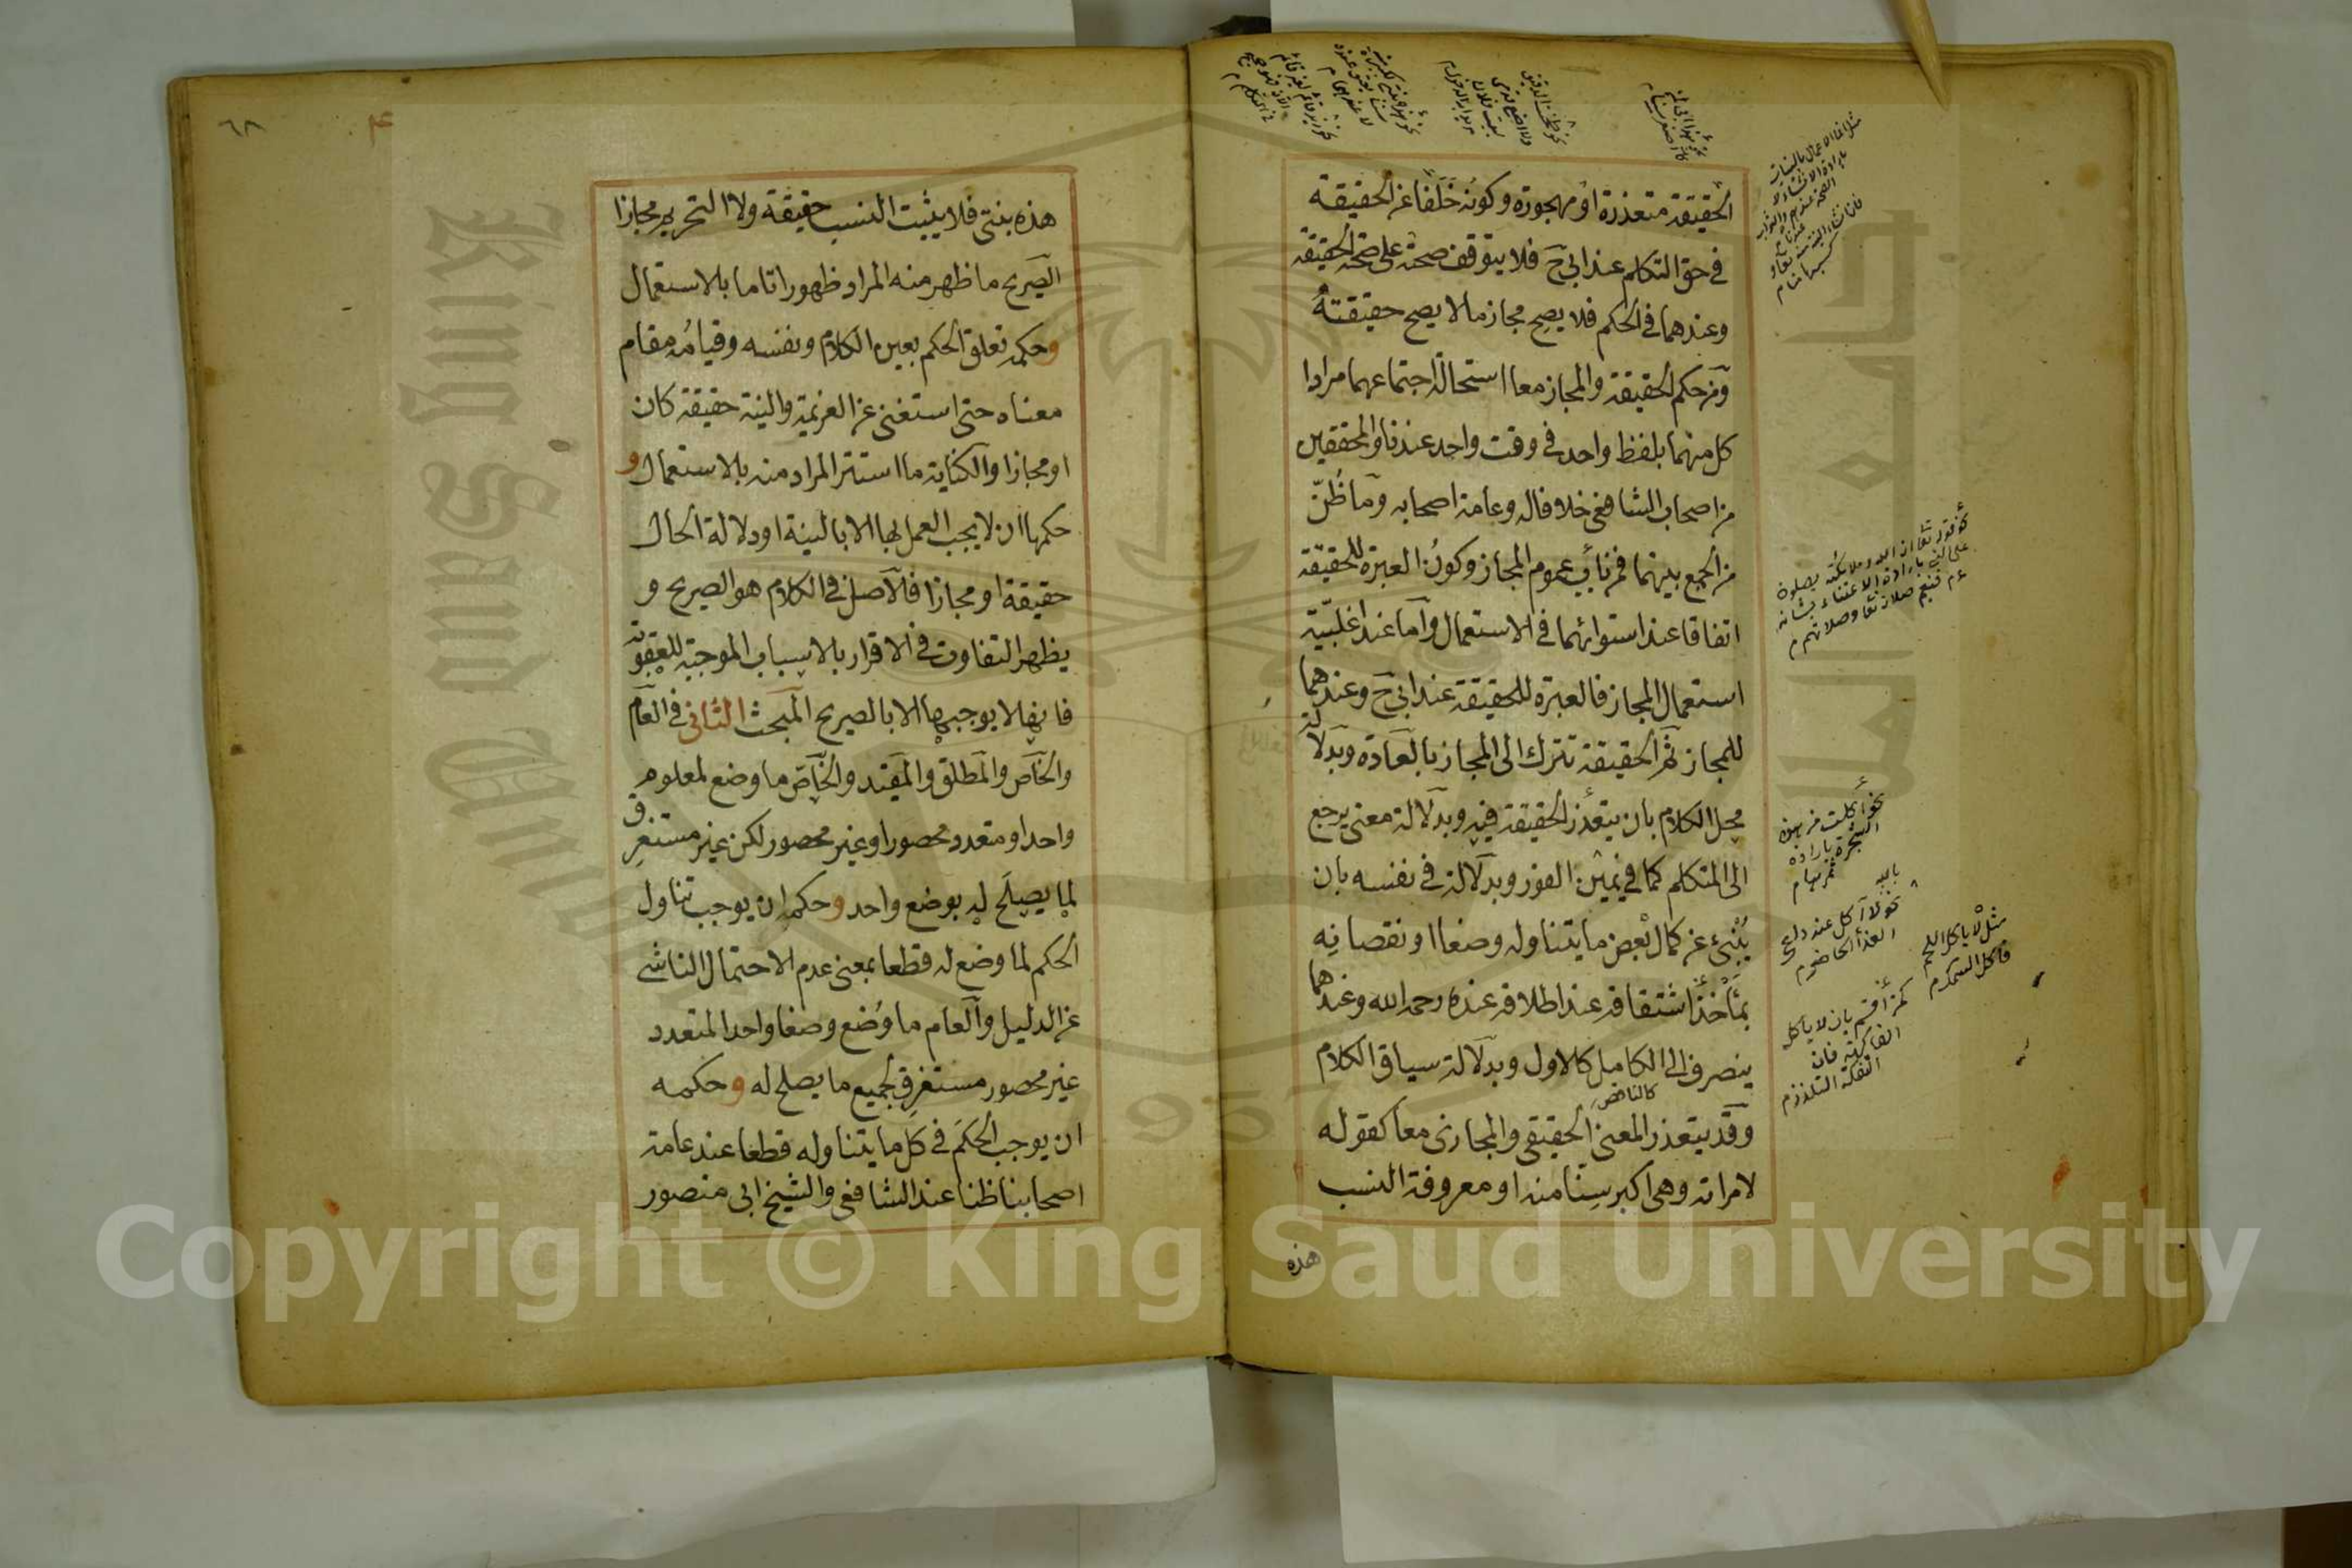 الحقيقة متعذرة او مهجورة وكونه خلفا عن الحقيقة
في حق التكلم عند ابي ح فلا يتوقف صحته على صحة الحقيقة
وعندهما في الحكم فلا يصح مجاز ما لا يصح حقيقته
ومن حكم الحقيقة والمجاز معا استحالة اجتماعهما مرادا
كل منهما بلفظ واحد في وقت واحد عندنا والمحققين
من اصحاب الشافعي خلافا له وعامة اصحابه وما ظن
من الجمع بينهما فمن باب عموم المجاز وكون العبرة للحقيقة
اتفاقا عند استوائهما في الاستعمال واما عند اغلبية
استعمال المجاز فالعبرة للحقيقة عند ابي ح وعندهما
للمجاز ثم الحقيقة تترك الى المجاز بالعادة وبدلالة
محل الكلام بان يتعذر الحقيقة فيه وبدلالة معنى يرجع
الى المتكلم كما في يمين الفور وبدلالة في نفسه بان
ينبئ عن كمال بعض ما يتناوله وضعا او نقصانه
بمأخذ اشتقاقه عند اطلاقه عنده رحمه الله وعندهما
ينصرف الى الكامل كالاول وبدلالة سياق الكلام
كالناقص
وقد يتعذر المعنى الحقيقي والمجازي معا كقوله
لامراته وهي اكبر سنا منه او معروفة النسب
هذه
نحو أكلت من هذه
الشجرة بارادة
ثمرها م
مثل لا ياكل اللحم
فاكل السمك م
كمن أقسم بان لا يأكل
الفاكهة فان
التفكه التلذذ م
٦٨
هذه بنتى فلا يثبت النسب حقيقة ولا التحريم مجازا
الصريح ما ظهر منه المراد ظهورا تاما بالاستعمال
وحكمه تعلق الحكم بعين الكلام ونفسه وقيامه مقام
معناه حتى استغنى عن العزيمة والنية حقيقة كان
او مجازا والكناية ما استتر المراد منه بالاستعمال و
حكمها ان لا يجب العمل بها الا بالنية او دلالة الحال
حقيقة او مجازا فالاصل في الكلام هو الصريح و
يظهر التفاوت في الاقرار بالاسباب الموجبة للعقوبة
فانها لا يوجبها الا بالصريح المبحث الثاني في العام
والخاص والمطلق والمقيد والخاص ما وضع لمعلوم
واحد او متعدد محصور او غير محصور لكن غير مستغرق
لما يصلح له بوضع واحد وحكمه ان يوجب تناول
الحكم لما وضع له قطعا بمعنى عدم الاحتمال الناشى
عن الدليل والعام ما وضع وضعا واحدا لمتعدد
غير محصور مستغرق لجميع ما يصلح له وحكمه
ان يوجب الحكم في كل ما يتناوله قطعا عند عامة
اصحابنا ظنا عند الشافعي والشيخ ابي منصور
King Saud University
جامعة الملك
1957
Copyright © King Saud University